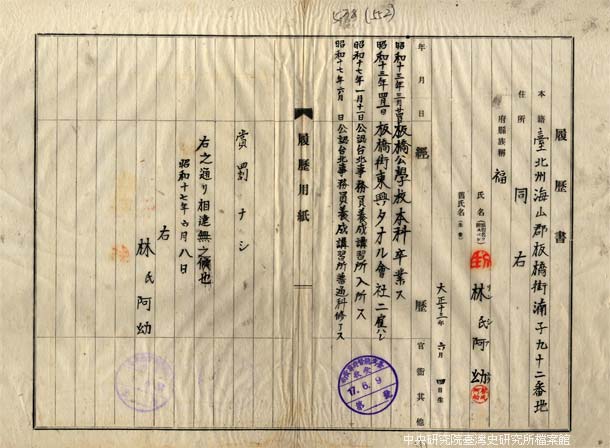 538 (152)
履歷書
本籍 臺北州海山郡板橋街湳子九十二番地
住所 同右
府縣族稱 福
氏名 林氏阿幼
舊氏名
大正十三年 六月 四日生
年月日 經歷 官衙其他
昭和十三年三月 板橋公學校本科卒業ス
昭和十三年四月 板橋街東興タオル會社ニ雇ハル
昭和十七年一月十一日 公認台北事務員養成講習所入所ス
昭和十七年六月 日 公認台北事務員養成講習所普通科修了ス
履歷用紙
賞罰ナシ
右之通リ相違無之候也
昭和十七年六月八日
右
林氏阿幼
17.6.9
中央研究院臺灣史研究所檔案館